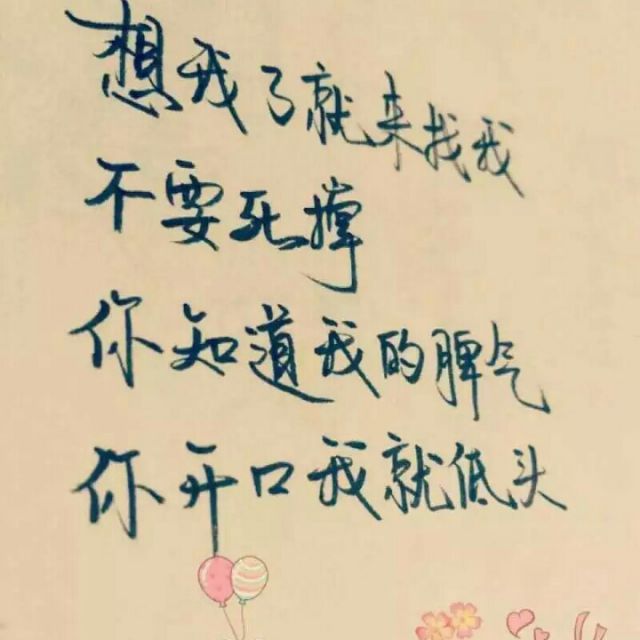 想我了就来找我
不要死撑
你知道我的脾气
你开口我就低头